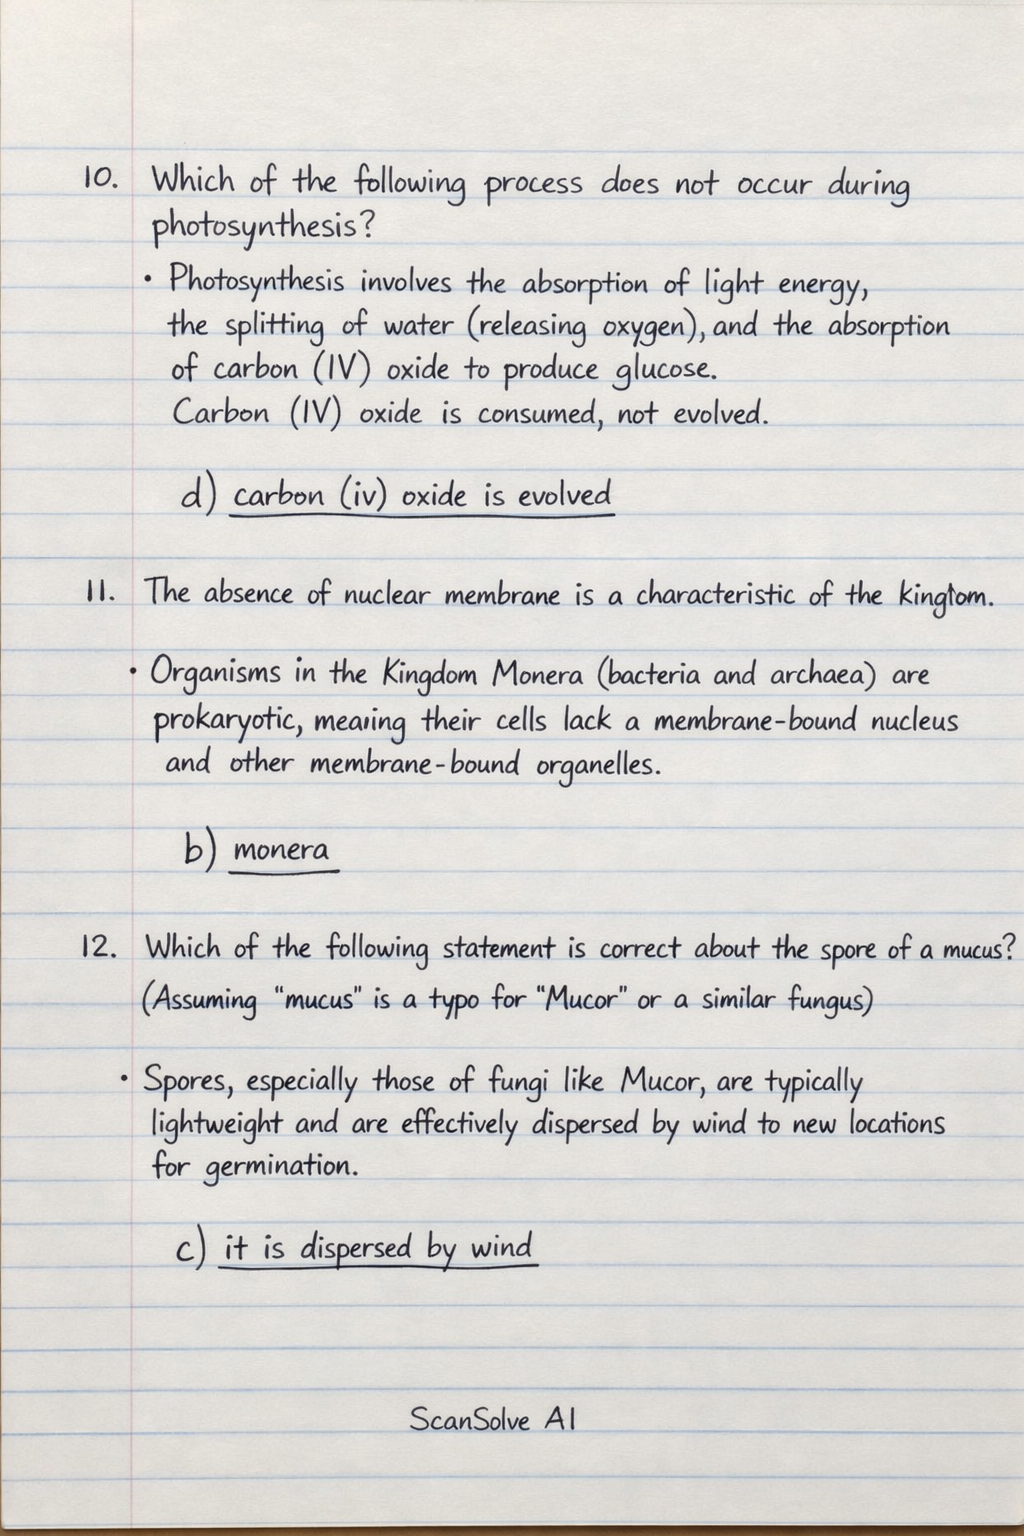 10. Which of the following process does not occur during
photosynthesis?
• Photosynthesis involves the absorption of light energy,
the splitting of water (releasing oxygen), and the absorption
of carbon (IV) oxide to produce glucose.
Carbon (IV) oxide is consumed, not evolved.
d) carbon (iv) oxide is evolved
11. The absence of nuclear membrane is a characteristic of the kingtom.
• Organisms in the Kingdom Monera (bacteria and archaea) are
prokaryotic, mearing their cells lack a membrane-bound nucleus
and other membrane-bound organelles.
b) monera
12. Which of the following statement is correct about the spore of a mucus?
(Assuming "mucus" is a typo for "Mucor" or a similar fungus)
• Spores, especially those of fungi like Mucor, are typically
lightweight and are effectively dispersed by wind to new locations
for germination.
c) it is dispersed by wind
ScanSolve AI